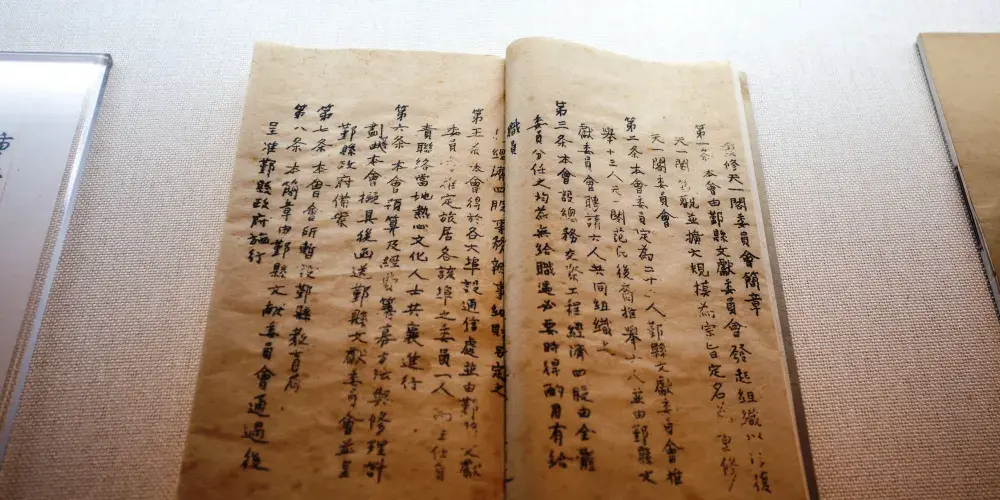 重修天一閣委員會簡章
第一條 本會由鄞縣文獻委員會發起組織以浮復
天一閣舊觀並擴大規模為宗旨定名為重修
天一閣委員會
第二條 本會委員定為二十一人鄞縣文獻委員會推
舉十三人天一閣范氏後裔推舉二人並由鄞縣文
獻委員會聘請六人共同組織之
第三條 本會設總務交際工程經濟四股由全體
委員分任之均為無給職遇必要時得酌用有給
職員
經濟四股事務辦事細則另定之
第五條 本會得於各大埠設通信處並由鄞縣文獻
委員會推定旅居各該埠之委員一人為主任負
責聯絡當地熱心文化人士共襄進行
第六條 本會預算及經費籌募方法與修理計
劃概本會擬具後函送鄞縣文獻委員會並呈
鄞縣政府備案
第七条 本會會所暫設鄞縣教育局
第八条 本簡章由鄞縣文献委員會通過後
呈准鄞縣政府施行